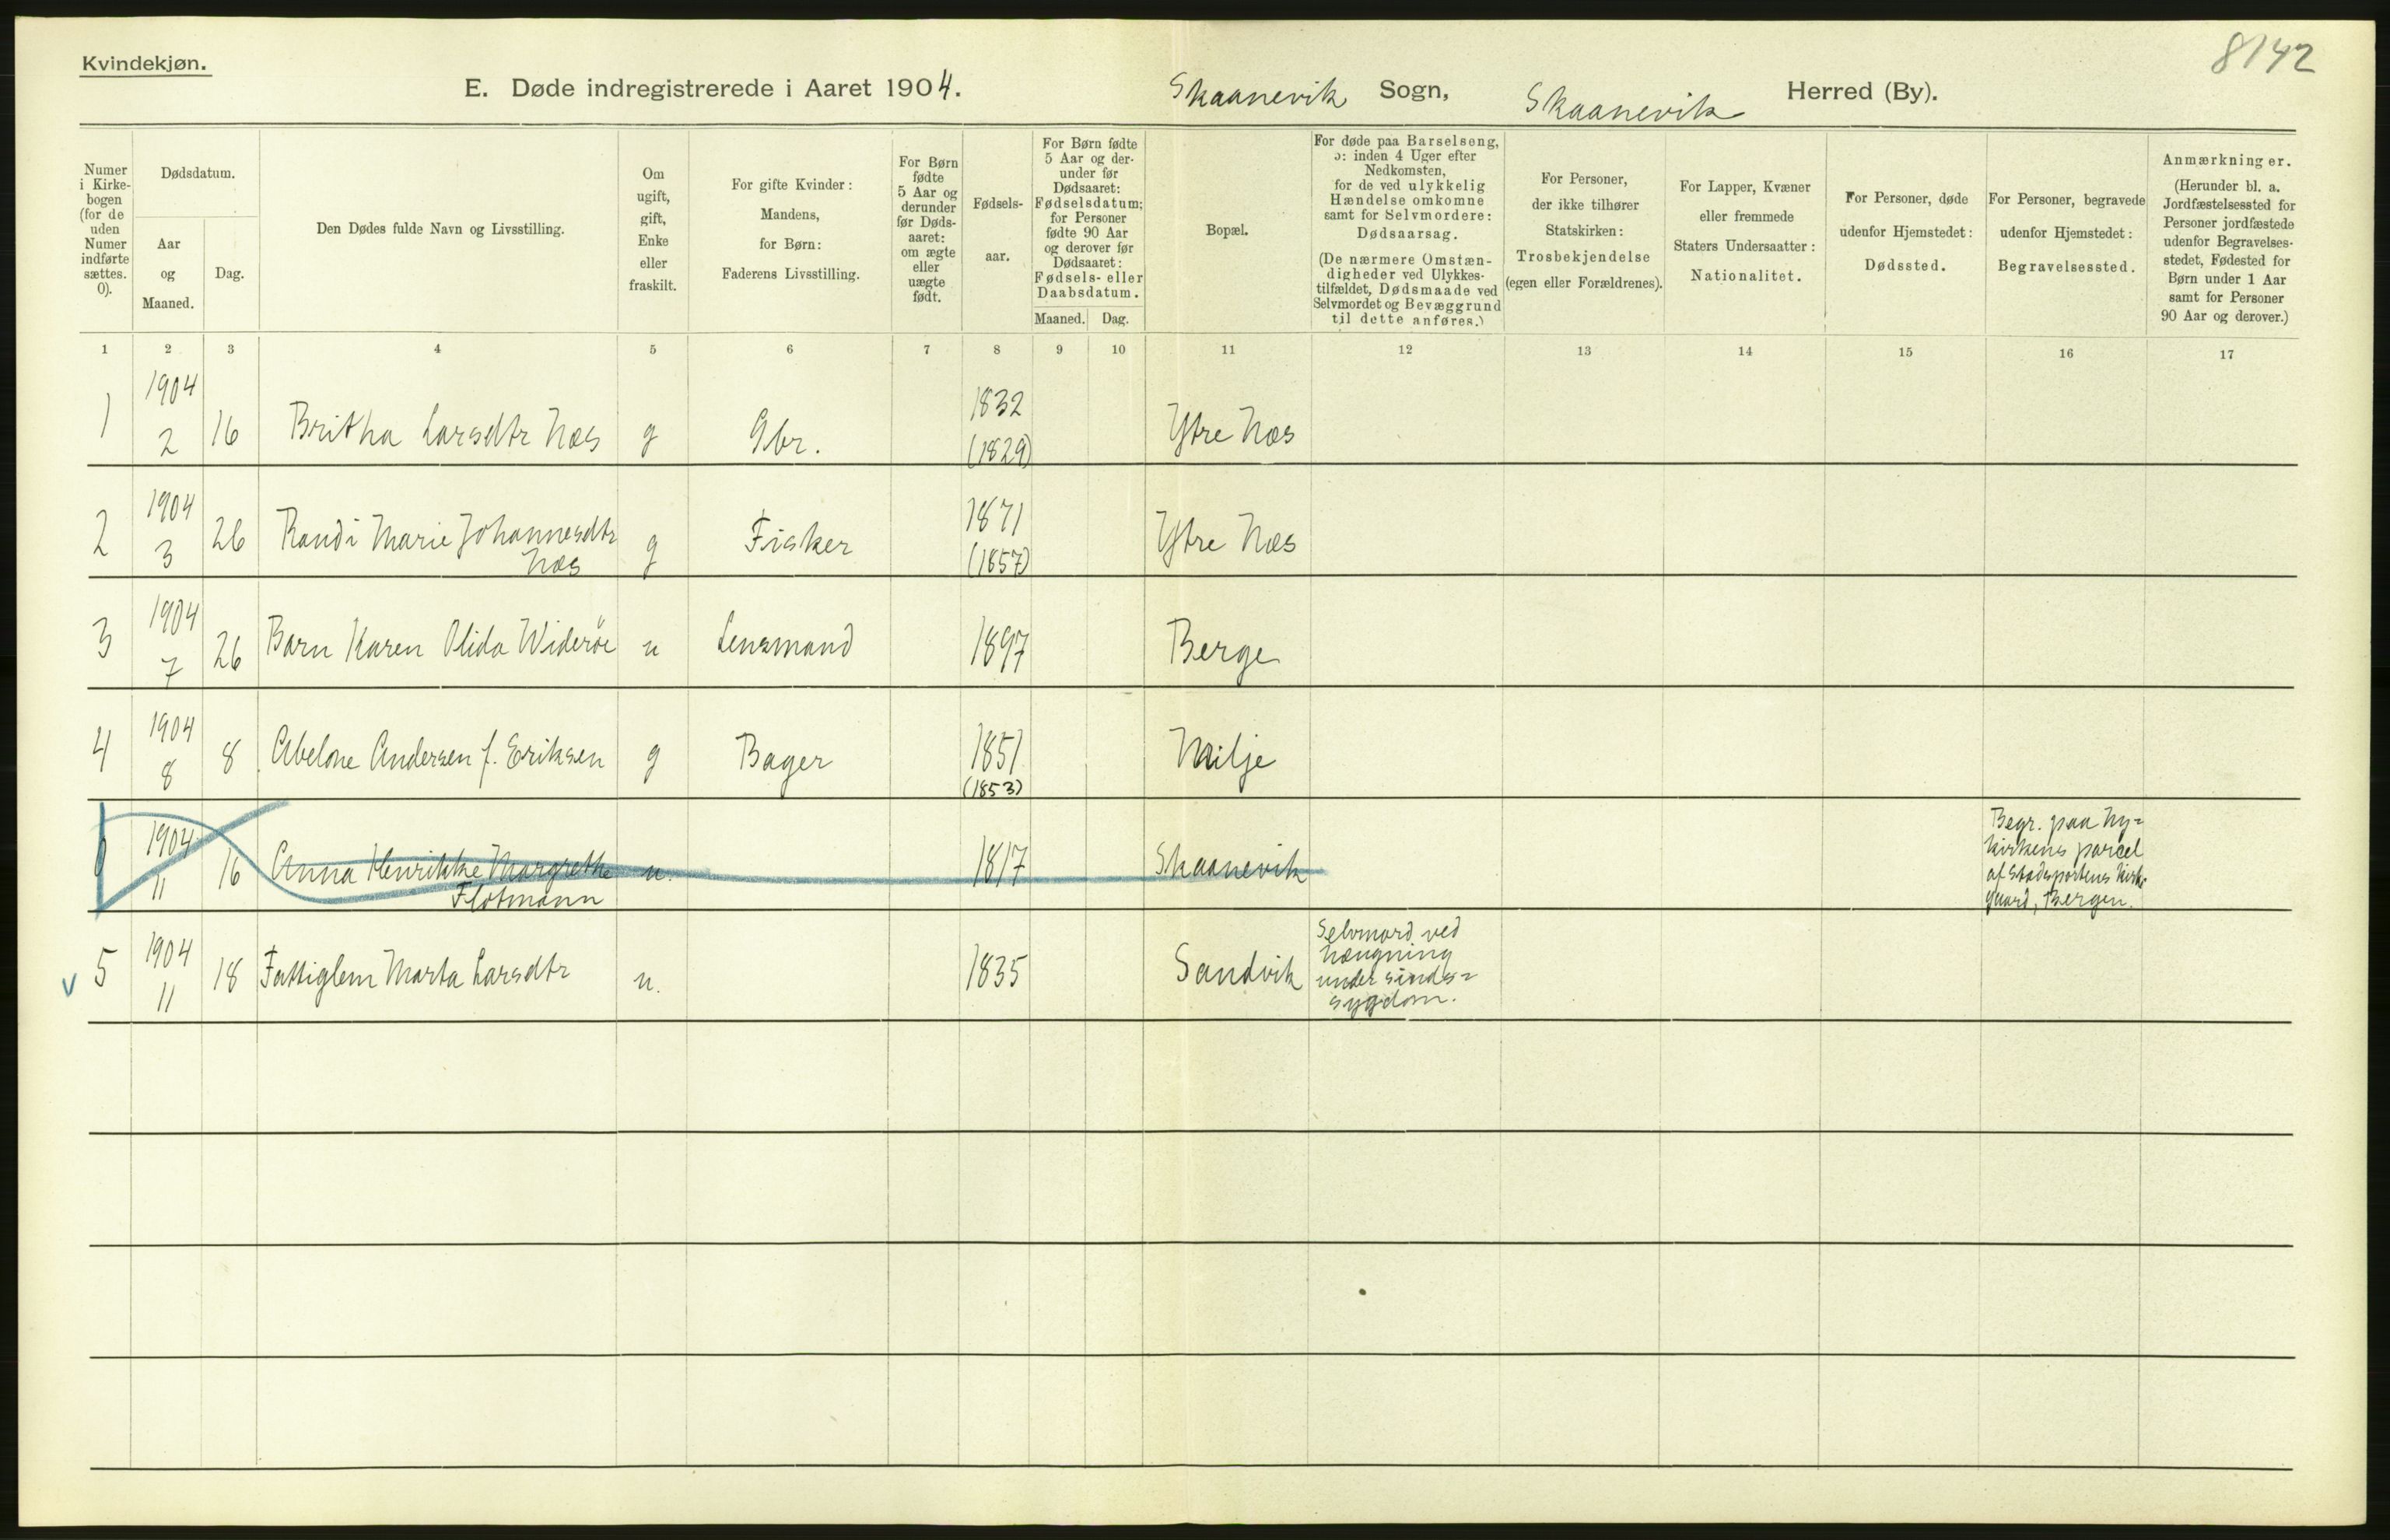 Kvindekjøn.
8142
E. Døde indregistrerede i Aaret 1904. Skaanevik Sogn, Skaanevik Herred (By).
Numer
i Kirke-
bogen
(for de
uden
Numer
indførte
sættes.
0).
Dødsdatum.
Aar
og
Maaned.
Dag.
Den Dødes fulde Navn og Livsstilling.
Om
ugift,
gift,
Enke
eller
fraskilt.
For gifte Kvinder:
Mandens,
for Børn:
Faderens Livsstilling.
For Børn
fødte
5 Aar og
derunder
før Døds-
aaret:
om ægte
eller
uægte
født.
Fødsels-
aar.
For Børn fødte
5 Aar og der-
under før
Dødsaaret:
Fødselsdatum;
for Personer
fødte 90 Aar
og derover før
Dødsaaret:
Fødsels- eller
Daabsdatum.
Maaned. Dag.
Bopæl.
For døde paa Barselseng,
ɔ: inden 4 Uger efter
Nedkomsten,
for de ved ulykkelig
Hændelse omkomne
samt for Selvmordere:
Dødsaarsag.
(De nærmere Omstæn-
digheder ved Ulykkes-
tilfældet, Dødsmaade ved
Selvmordet og Bevæggrund
til dette anføres.)
For Personer,
der ikke tilhører
Statskirken:
Trosbekjendelse
(egen eller Forældrenes).
For Lapper, Kvæner
eller fremmede
Staters Undersaatter:
Nationalitet.
For Personer, døde
udenfor Hjemstedet:
Dødssted.
For Personer, begravede
udenfor Hjemstedet:
Begravelsessted.
Anmærkninger.
(Herunder bl. a.
Jordfæstelsessted for
Personer jordfæstede
udenfor Begravelses-
stedet, Fødested for
Børn under 1 Aar
samt for Personer
90 Aar og derover.)
1 2 3 4 5 6 7 8 9 10 11 12 13 14 15 16 17
1904 1832
1 2 16 Britha Larsdtr Næs g Gbr. (1829) Ytre Næs
1904 1871
2 3 26 Randi Marie Johannesdtr g Fisker (1857) Ytre Næs
Næs
1904
3 7 26 Barn Karen Olida Widerøe u Lensmand 1897 Berge
1904
4 8 8 Abelone Andersen f. Eriksen g Bager 1851 Milje
(1853)
1904
0 11 16 Anna Henrikke Margrethe u. 1817 Skaanevik
Flotmann
Begr. paa Ny=
kirkens parcel
af Stadsportens Kirke
gaard, Bergen.
1904
v 5 11 18 Fattiglem Marta Larsdtr u. 1835 Sandvik
Selvmord ved
hængning
under sinds=
sygdom.